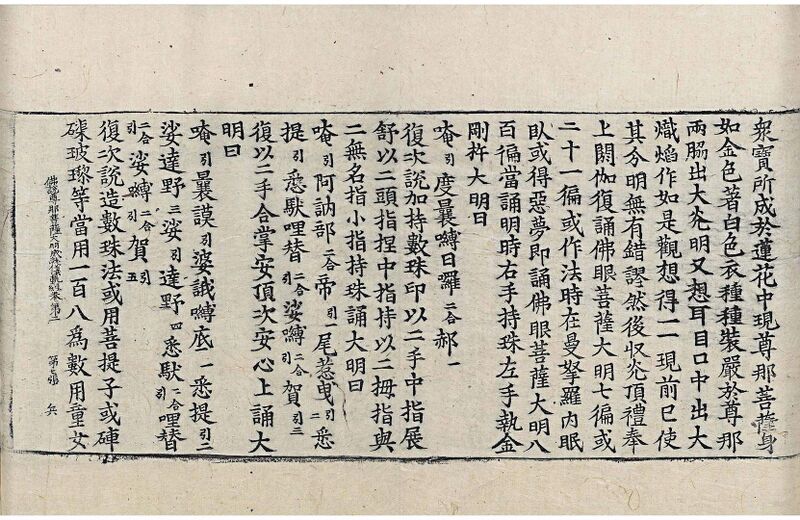 衆寶所成於蓮花中現尊那菩薩身
如金色著白色衣種種裝嚴於尊那
兩脇出大光明又想耳目口中出大
熾焰作如是觀想得一一現前已使
其分明無有錯謬然後收光頂禮奉
上閼伽復誦佛眼菩薩大明七徧或
二十一徧或作法時在曼拏羅内眠
臥或得惡夢即誦佛眼菩薩大明八
百徧當誦明時右手持珠左手執金
剛杵大明曰
唵引度曩嚩日羅二合郝一
復次說加持數珠印以二手中指展
舒以二頭指捏中指持以二拇指與
二無名指小指持珠誦大明曰
唵引阿訥部二合帝引一尾惹曳引二悉
提引悉馱哩替二合娑嚩二合賀引三
復以二手合掌安頂次安心上誦大
明曰
唵引曩謨引婆誐嚩底一悉提引二
娑達野三娑引達野四悉馱引哩替二合
二合引娑嚩二合賀引五
復次說造數珠法或用菩提子或硨
磲玻瓈等當用一百八爲數用童女
佛說尊那菩薩大明成就儀軌經卷第二 第七張 兵